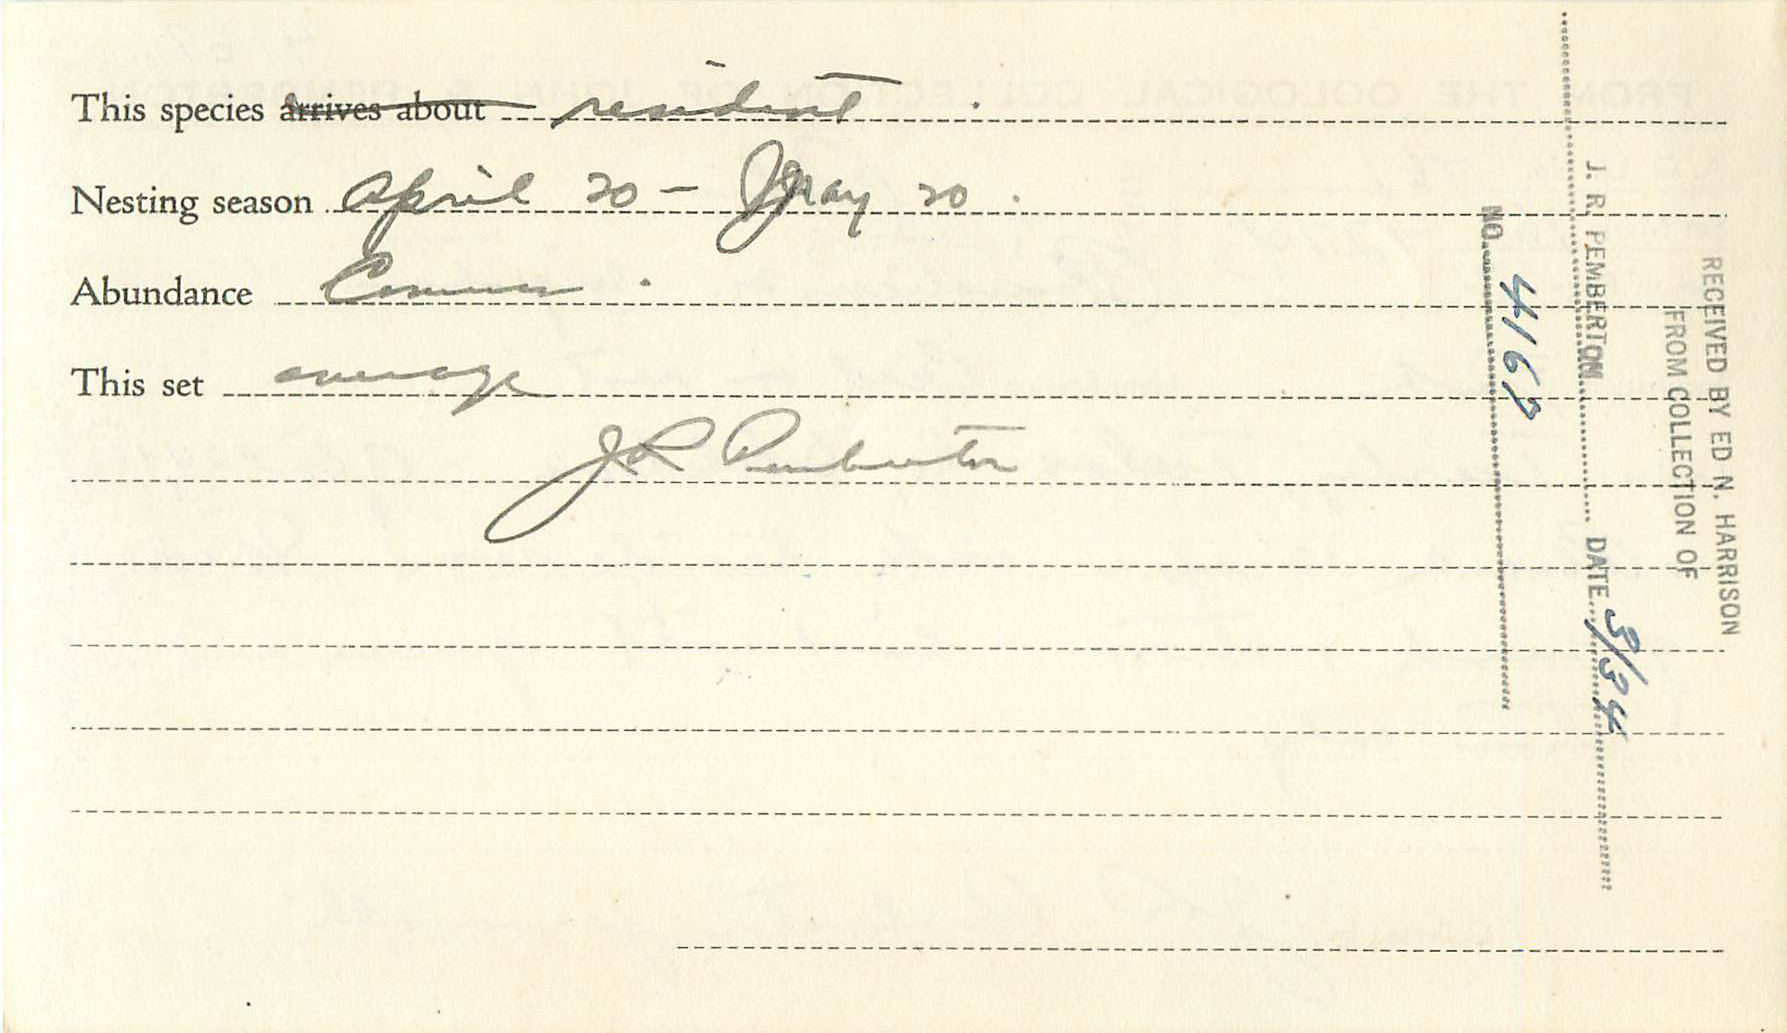 This species arrives about resident.
Nesting season April 20 - May 20.
Abundance Common.
This set average
J R Pemberton
RECEIVED BY ED N. HARRISON
FROM COLLECTION OF
J. R. PEMBERTON DATE 3/34
NO. 4167